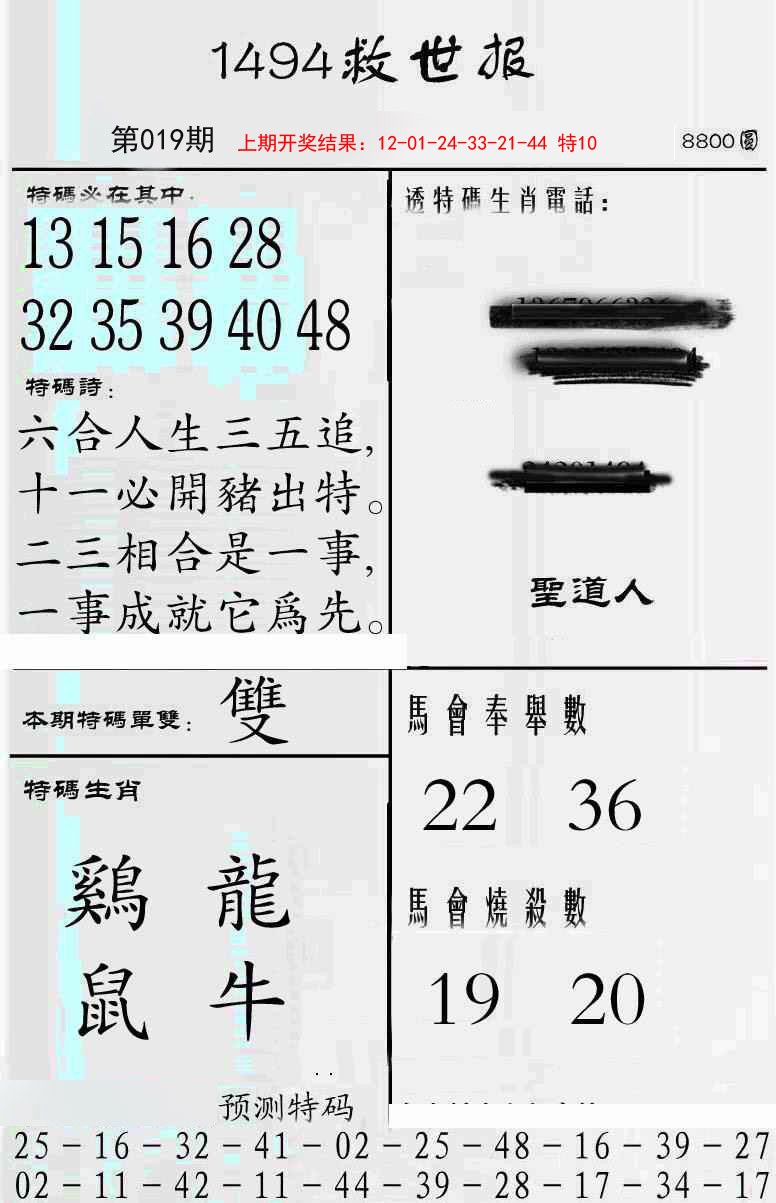 1494救世报
第019期 上期开奖结果：12-01-24-33-21-44 特10 8800圆
特碼必在其中:
13 15 16 28
32 35 39 40 48
特碼詩：
六合人生三五追,
十一必開豬出特。
二三相合是一事,
一事成就它爲先。
透特碼生肖電話：
聖道人
本期特碼單雙： 雙
特碼生肖
鷄 龍
鼠 牛
馬會奉舉數
22 36
馬會燒殺數
19 20
预测特码
25－16－32－41－02－25－48－16－39－27
02－11－42－11－44－39－28－17－34－17